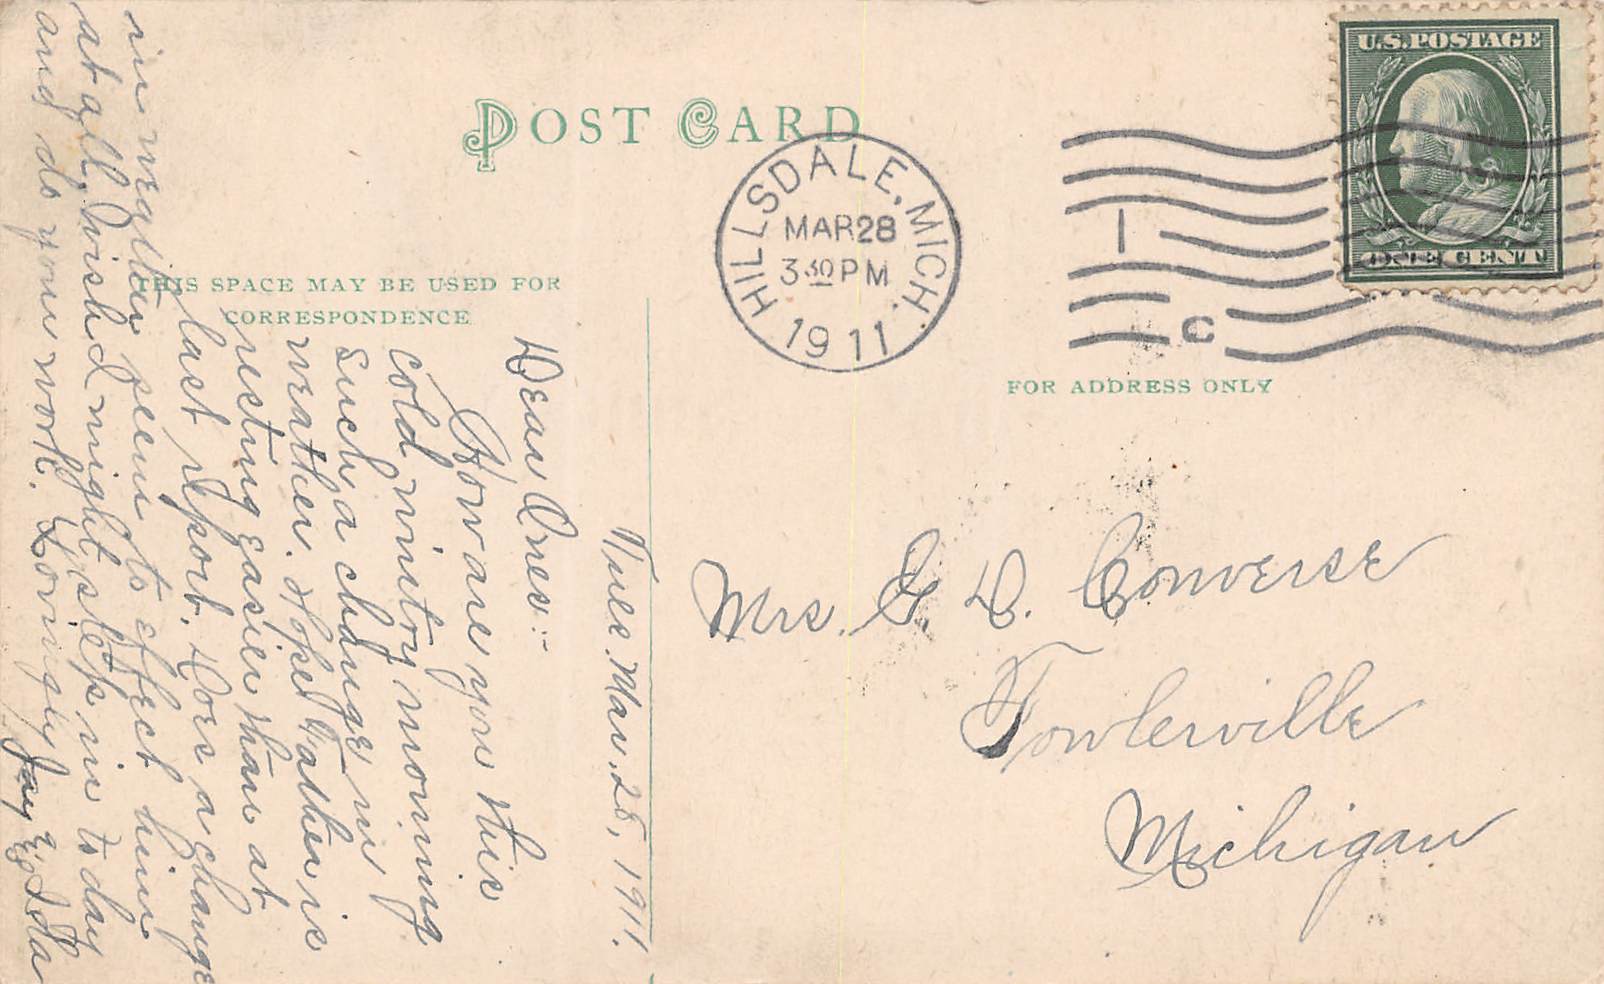 POST CARD
THIS SPACE MAY BE USED FOR
CORRESPONDENCE
FOR ADDRESS ONLY
U.S. POSTAGE
ONE CENT
HILLSDALE, MICH.
MAR 28
3 30 PM
1911
1
C
Mrs. G. D. Converse
Fowlerville
Michigan
Tues. Mar. 28, 1911.
Dear Ones:-
How are you this
cold wintry morning
such a change in
weather. Hope Father is
resting easier than at
last report. Does a change
in weather seem to effect him
at all. Wish I might step in to day
and do your work. Lovingly Jay & Ida